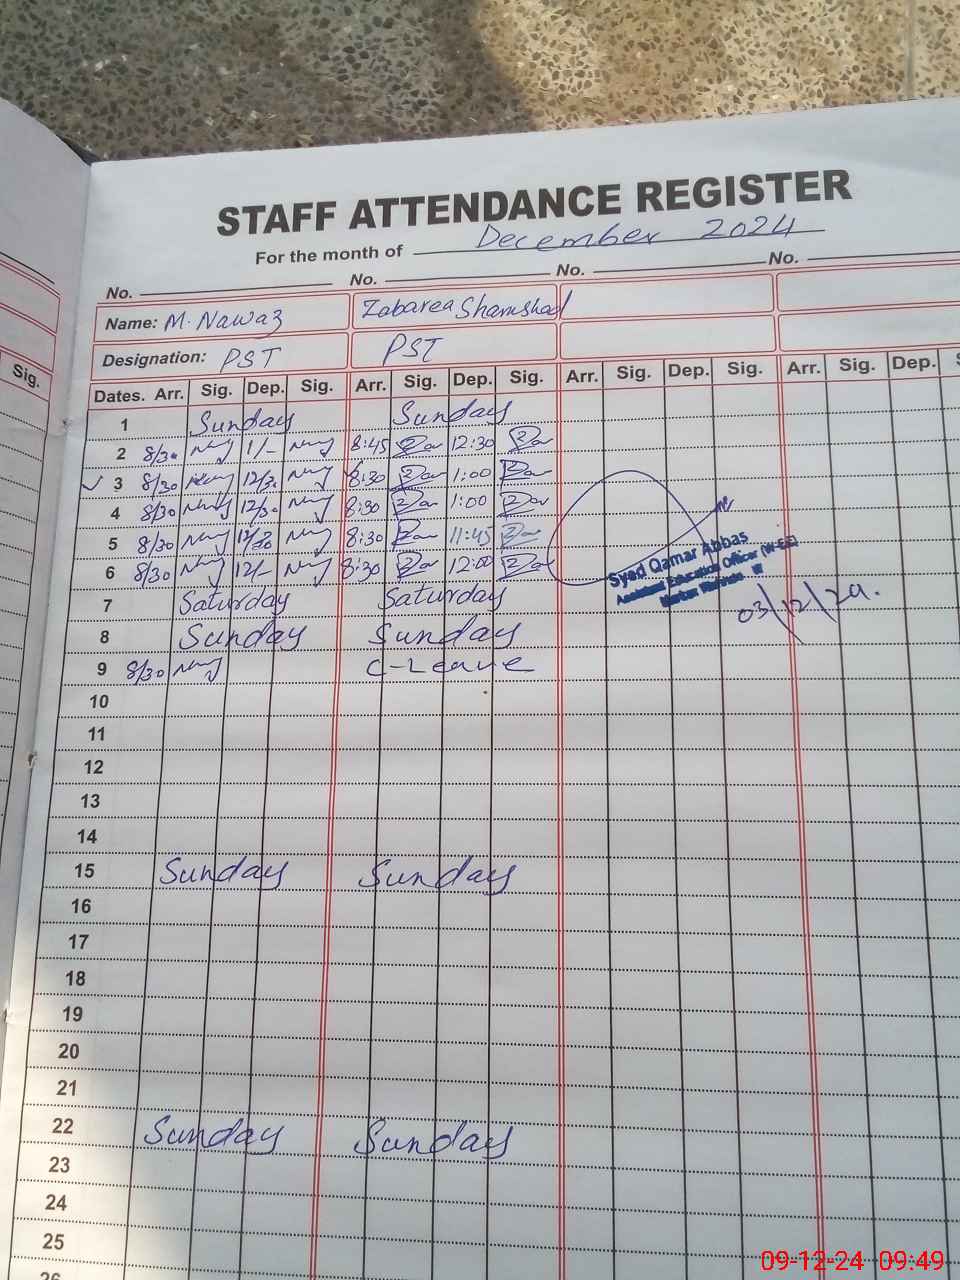 STAFF ATTENDANCE REGISTER
For the month of December 2024
No. No. No. No.
Name: M. Nawaz Zabarea Shamshad
Designation: PST PST
Sig. Dates. Arr. Sig. Dep. Sig. Arr. Sig. Dep. Sig. Arr. Sig. Dep. Sig. Arr. Sig. Dep.
1 Sunday Sunday
2 8/30 1/- 8:45 12:30
3 8/30 12/30 8:30 1:00
4 8/30 12/30 8:30 1:00
5 8/30 12/30 8:30 11:45
6 8/30 12/- 8:30 12:00
Syed Qamar Abbas
Assistant Education Officer (W-EE)
03/12/24.
7 Saturday Saturday
8 Sunday Sunday
9 8/30 C-Leave
10
11
12
13
14
15 Sunday Sunday
16
17
18
19
20
21
22 Sunday Sunday
23
24
25
26
09-12-24 09:49